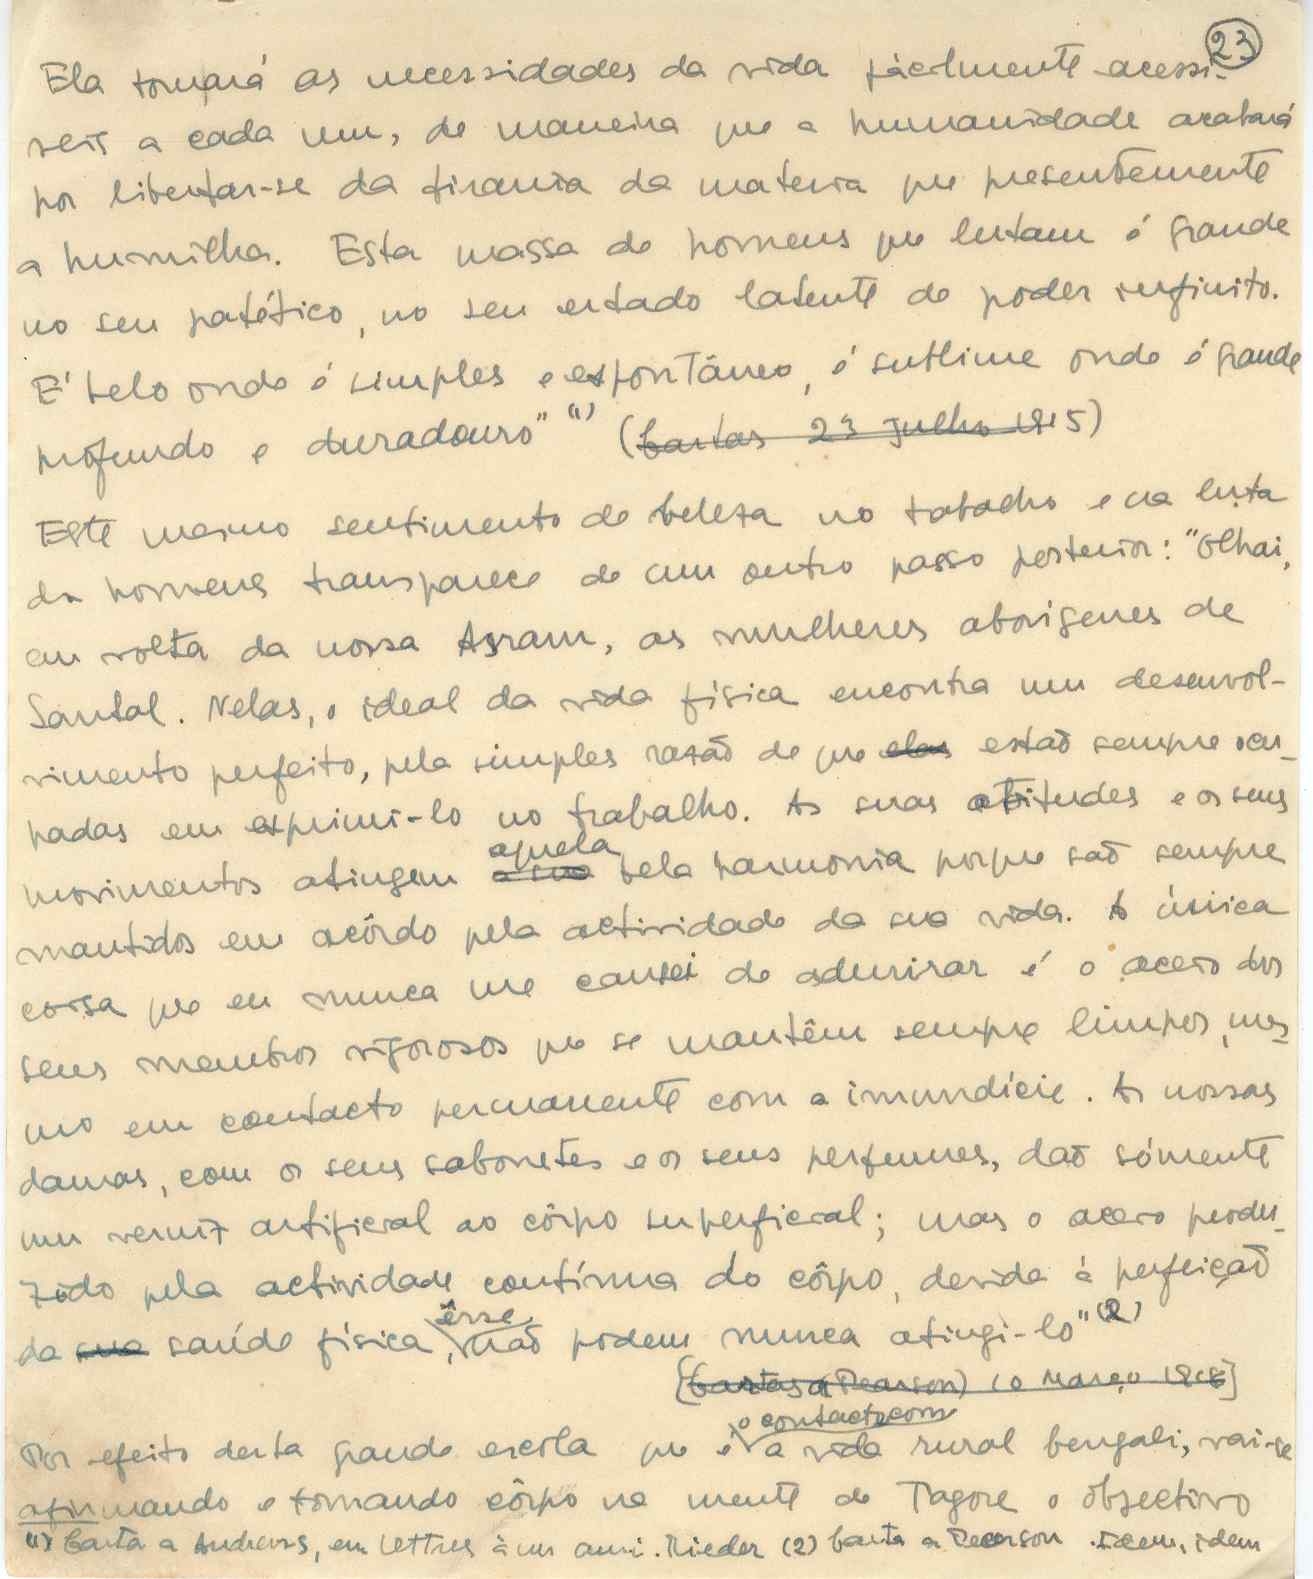 23
Ela tornará as necessidades da vida fàcilmente acessi-
veis a cada um, de maneira que a humanidade acabará
por libertar-se da tirania da materia que presentemente
a humilha. Esta massa de homens que lutam é grande
no seu patético, no seu estado latente de poder infinito.
E' belo onde é simples e espontâneo, é sublime onde é grande
profundo e duradouro" (1) (Cartas 23 Julho 1915)
Este mesmo sentimento de beleza no trabalho e na luta
de homens transparece de um outro passo posterior: "Olhai,
em volta da nossa Asram, as mulheres aborigenes de
Santal. Nelas, o ideal da vida física encontra um desenvol-
vimento perfeito, pela simples razão de que elas estão sempre ocu-
padas em exprimi-lo no trabalho. As suas atitudes e os seus
aquela
movimentos atingem a sua bela harmonia porque são sempre
mantidos em acôrdo pela actividade da sua vida. A única
coisa que eu nunca me cansei de admirar é o aceio dos
seus membros vigorosos que se mantêm sempre limpos, mes-
mo em contacto permanente com a imundície. As nossas
damas, com os seus sabonetes e os seus perfumes, dão sómente
um verniz artificial ao côrpo superficial; mas o aceio produ-
zido pela actividade contínua do côrpo, devida à perfeição
êsse
da sua saúde física, não podem nunca atingi-lo" (2)
[Cartas (a Pearson) 10 Março 1918]
o contacto com
Por efeito desta grande escola que é a vida rural bengali, vai-se
afirmando e tomando côrpo na mente de Tagore o objectivo
(1) Carta a Andrews, em Lettres à un ami. Rieder (2) Carta a Pearson. Idem, idem